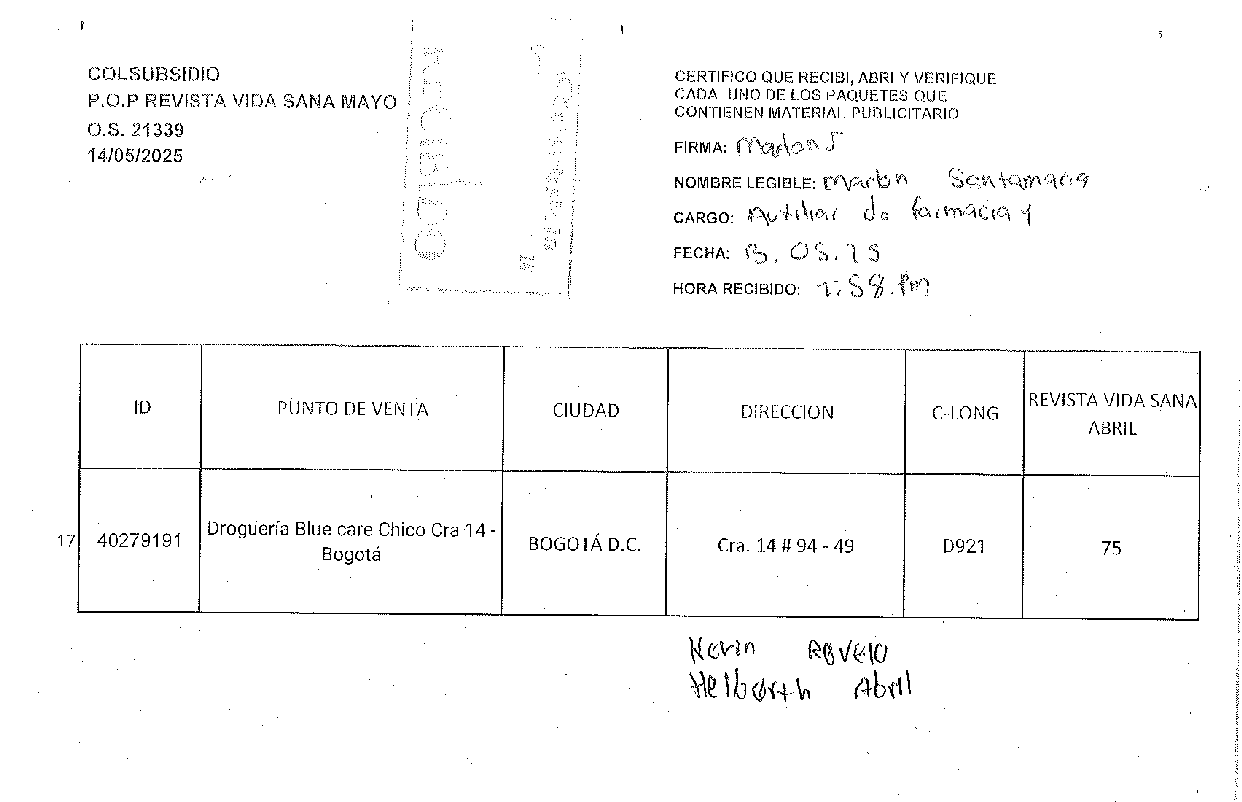 COLSUBSIDIO
P.O.P REVISTA VIDA SANA MAYO
O.S. 21339
14/05/2025
RECIBIDO
CERTIFICO QUE RECIBI, ABRI Y VERIFIQUE
CADA UNO DE LOS PAQUETES QUE
CONTIENEN MATERIAL PUBLICITARIO
FIRMA: Marlon S
NOMBRE LEGIBLE: Marlon Santamaria
CARGO: Auxiliar de farmacia y
FECHA: 15.05.25
HORA RECIBIDO: :58.Pm
ID
PUNTO DE VENTA
CIUDAD
DIRECCION
C-LONG
REVISTA VIDA SANA
ABRIL
17
40279191
Droguería Blue care Chico Cra 14 -
Bogotá
BOGOTÁ D.C.
Cra. 14 # 94 - 49
D921
75
Kevin
Helberth Abril